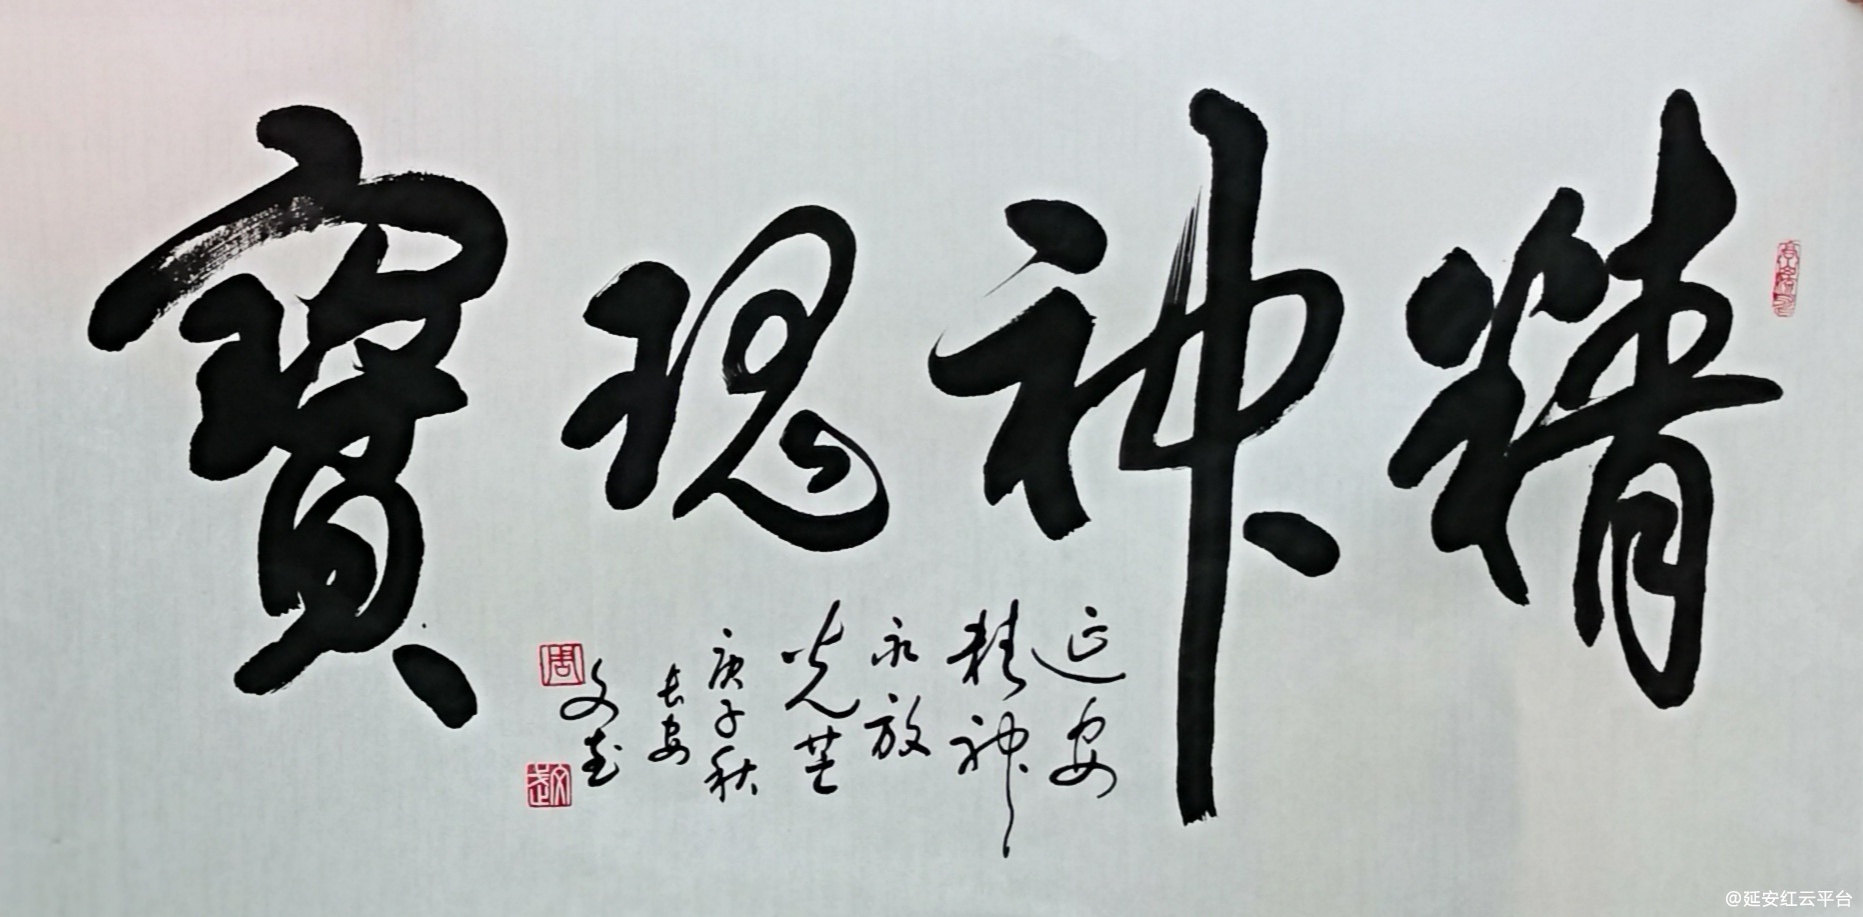 精神瑰寶
延安
精神
永放
光芒
庚子秋
長安
文志
周
@延安红云平台